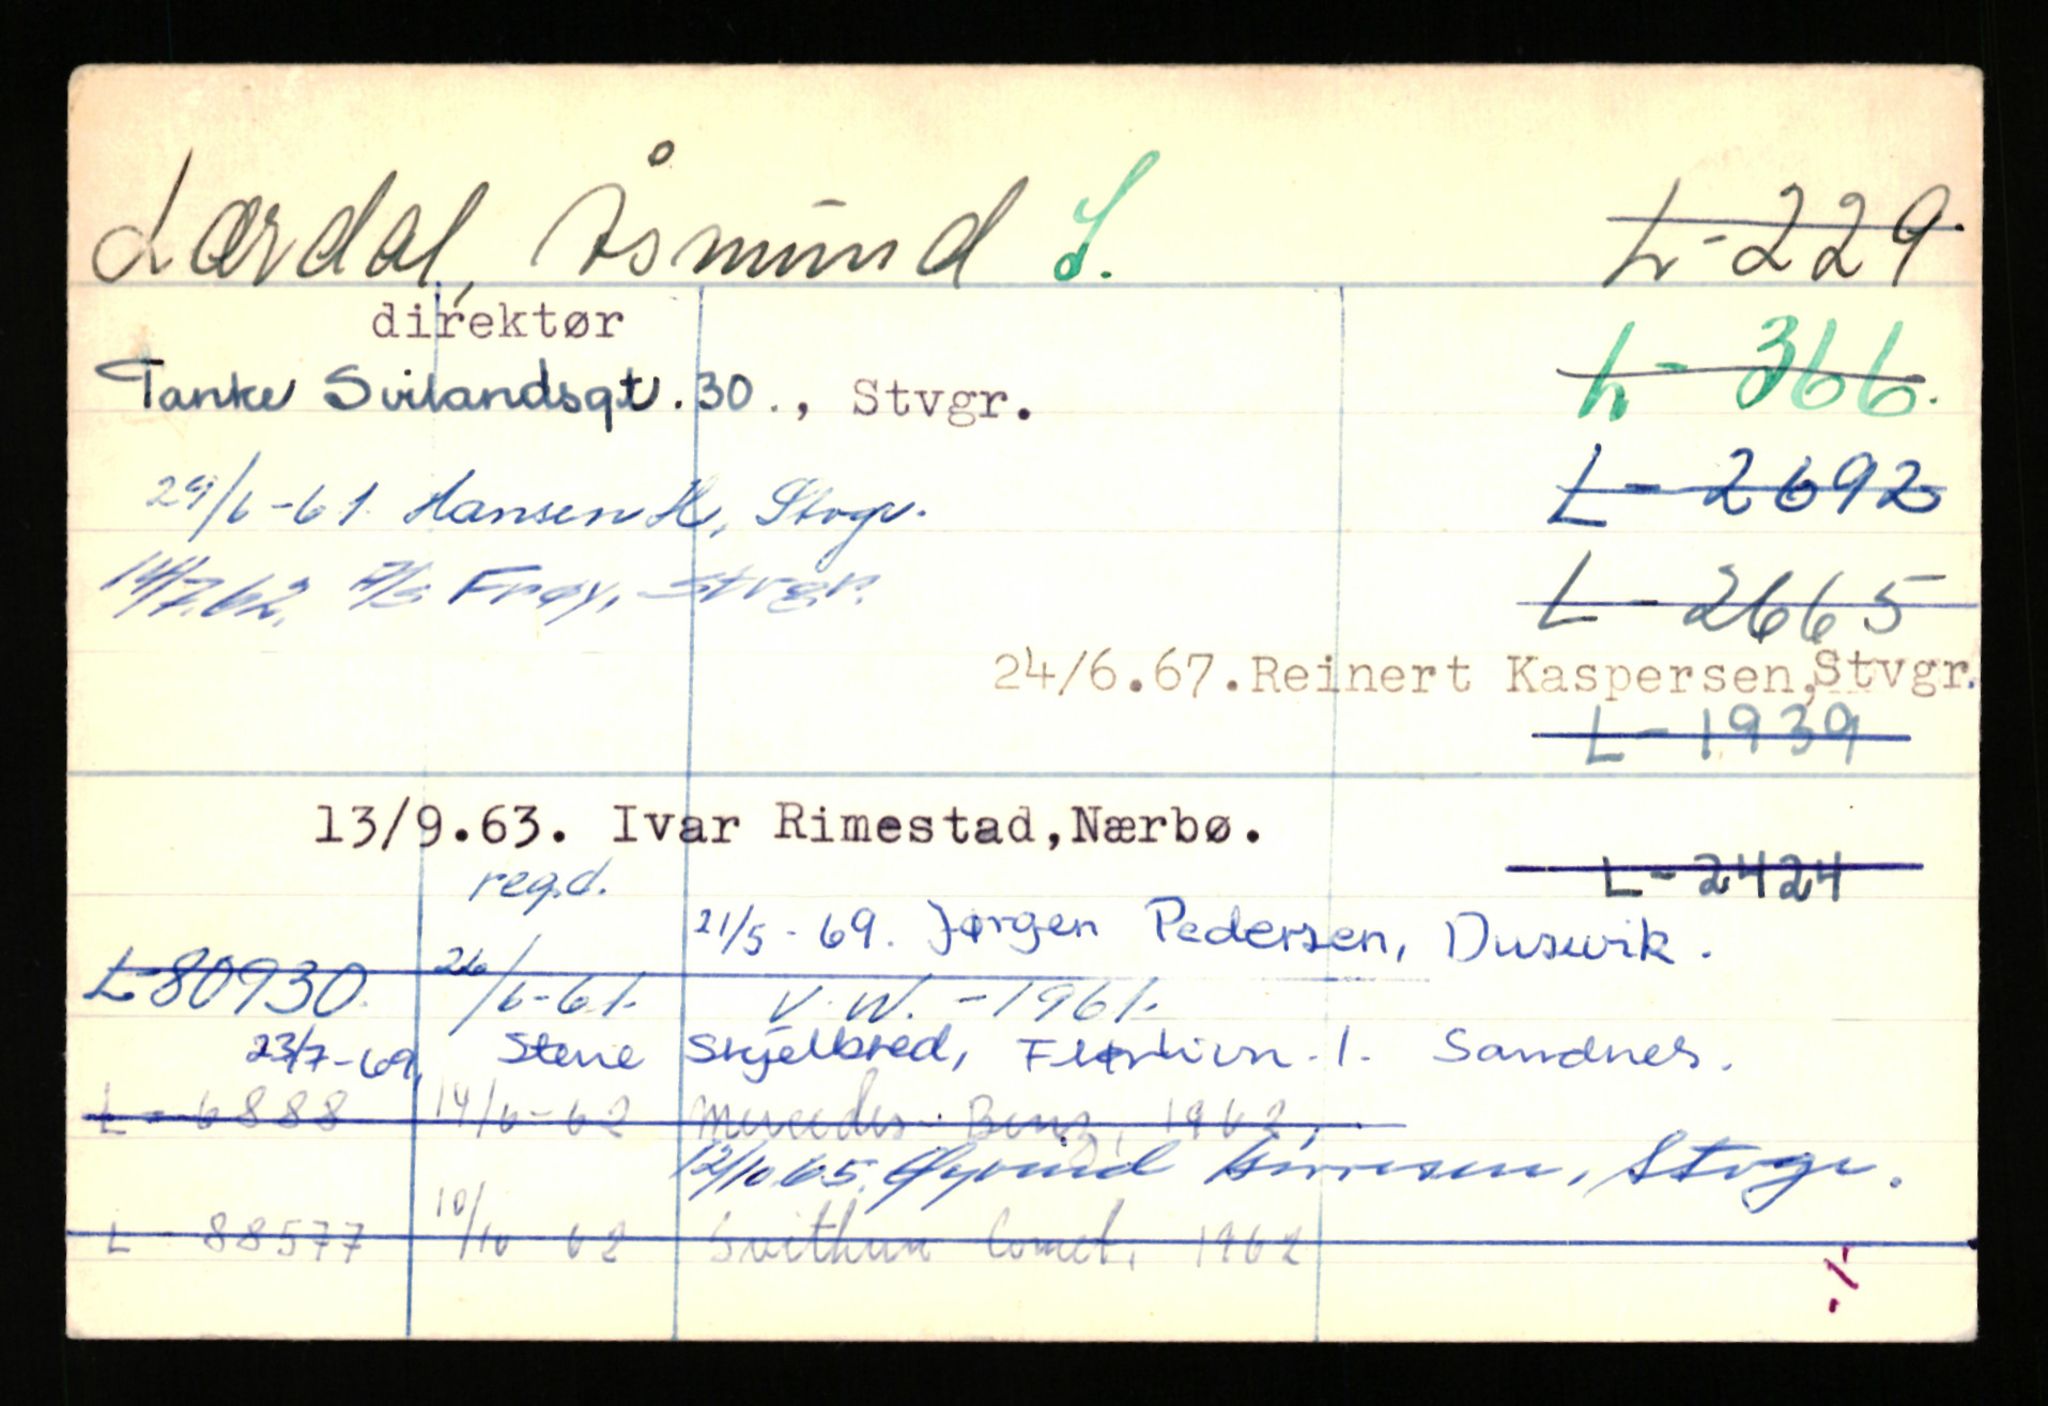 Lærdal, Åsmund S. L-229
direktør
Tanke Svilandsgt. 30., Stvgr. L-366.
L-2692
29/6-61. Hansen H, Stvgr.
14/7.62. A/S Frøy, Stvgr. L-2665
24/6.67. Reinert Kaspersen, Stvgr.
L-1939
13/9.63. Ivar Rimestad, Nærbø.
regd. L-2424
21/5-69. Jørgen Pedersen, Dusavik.
L-80930. 26/6-61. V.W.-1961.
23/7-69, Stene Skjelbred, 1. Sandnes.
L-6888 14/6-62 Mercedes-Benz, 1962,
12/10 65. Øyvind Stvgr.
L 88577 10/10 62 Svithun Comet, 1962
./.